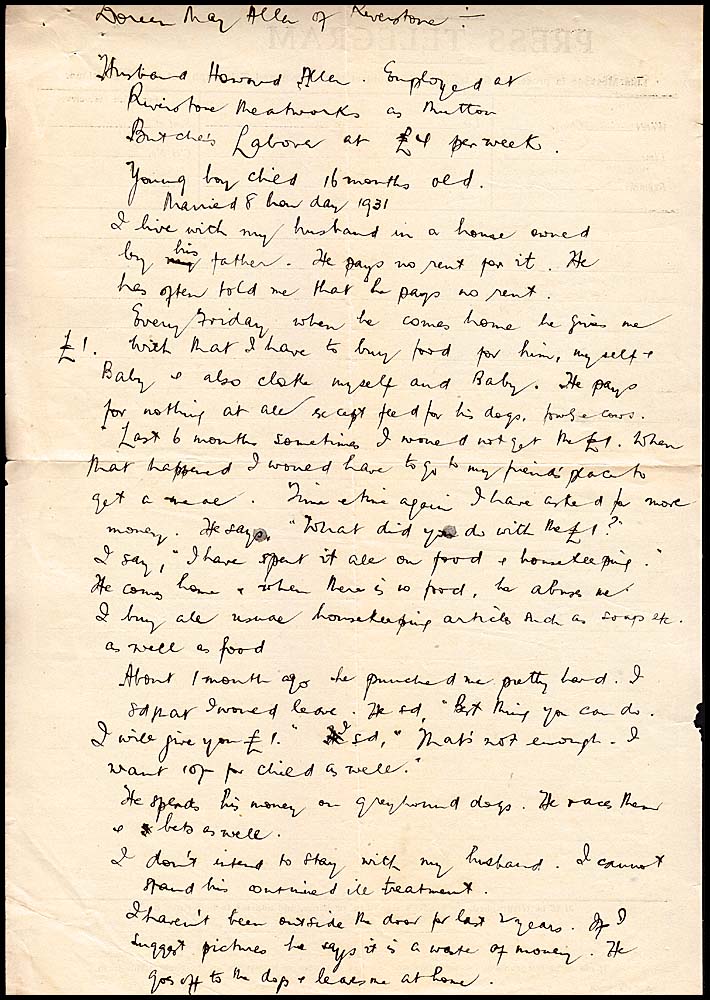 Doreen May Allen of Riverstone :-
PRESS TELEGRAM
Husband Howard Allen. Employed at
Riverstone Meatworks as Mutton
Butcher's Labourer at £4 per week.
Young boy child 16 months old.
Married 8 hour day 1931
I live with my husband in a house owned
by my his father. He pays no rent for it. He
has often told me that he pays no rent.
Every Friday when he comes home he gives me
£1. With that I have to buy food for him, myself &
Baby & also clothe myself and Baby. He pays
for nothing at all except feed for his dogs, fowls & cows.
"Last 6 months sometimes I would not get the £1. When
that happened I would have to go to my friend's place to
get a meal. Time & time again I have asked for more
money. He says, "What did you do with the £1?"
I say, "I have spent it all on food & housekeeping."
He comes home & when there is no food, he abuses me
I buy all usual housekeeping articles such as soaps etc.
as well as food
About 1 month ago he punched me pretty hard. I
sd that I would leave. He sd, "Best thing you can do.
I will give you £1." I sd, "That's not enough. I
want 10/- for child as well."
He spends his money on greyhound dogs. He races them
& bets as well.
I don't intend to stay with my husband. I cannot
stand his continued ill treatment.
I haven't been outside the door for last 2 years. If I
suggest pictures he says it is a waste of money. He
goes off to the dogs & leaves me at home.